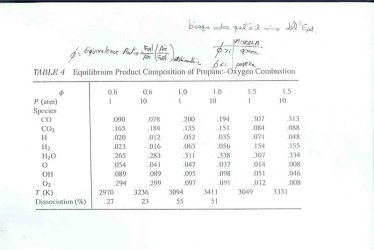 bisogna vedere qual è il
φ = Equivalence Ratio
φ>1
φ<1
TABLE 4 Equilibrium Product Composition of Propane–Oxygen Combustion
φ 0.6 0.6 1.0 1.0 1.5 1.5
P (atm) 1 10 1 10 1 10
Species
CO .090 .078 .200 .194 .307 .313
CO₂ .165 .184 .135 .151 .084 .088
H .020 .012 .052 .035 .071 .048
H₂ .023 .016 .063 .056 .154 .155
H₂O .265 .283 .311 .338 .307 .334
O .054 .041 .047 .037 .014 .008
OH .089 .089 .095 .098 .051 .046
O₂ .294 .299 .097 .091 .012 .008
T (K) 2970 3236 3094 3411 3049 3331
Dissociation (%) 27 23 55 51